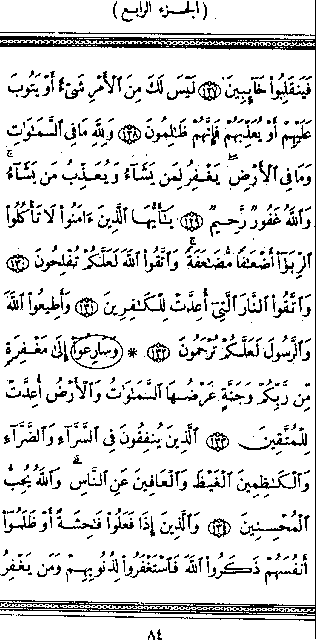 (الجزء الرابع)
فَيَنقَلِبُوا۟ خَآئِبِينَ ١٢٧ لَيْسَ لَكَ مِنَ ٱلْأَمْرِ شَىْءٌ أَوْ يَتُوبَ
عَلَيْهِمْ أَوْ يُعَذِّبَهُمْ فَإِنَّهُمْ ظَٰلِمُونَ ١٢٨ وَلِلَّهِ مَا فِى ٱلسَّمَٰوَٰتِ
وَمَا فِى ٱلْأَرْضِ ۚ يَغْفِرُ لِمَن يَشَآءُ وَيُعَذِّبُ مَن يَشَآءُ ۚ
وَٱللَّهُ غَفُورٌ رَّحِيمٌ ١٢٩ يَٰٓأَيُّهَا ٱلَّذِينَ ءَامَنُوا۟ لَا تَأْكُلُوا۟
ٱلرِّبَوٰٓا۟ أَضْعَٰفًا مُّضَٰعَفَةً ۖ وَٱتَّقُوا۟ ٱللَّهَ لَعَلَّكُمْ تُفْلِحُونَ ١٣٠
وَٱتَّقُوا۟ ٱلنَّارَ ٱلَّتِىٓ أُعِدَّتْ لِلْكَٰفِرِينَ ١٣١ وَأَطِيعُوا۟ ٱللَّهَ
وَٱلرَّسُولَ لَعَلَّكُمْ تُرْحَمُونَ ١٣٢ * وَسَارِعُوٓا۟ إِلَىٰ مَغْفِرَةٍ
مِّن رَّبِّكُمْ وَجَنَّةٍ عَرْضُهَا ٱلسَّمَٰوَٰتُ وَٱلْأَرْضُ أُعِدَّتْ
لِلْمُتَّقِينَ ١٣٣ ٱلَّذِينَ يُنفِقُونَ فِى ٱلسَّرَّآءِ وَٱلضَّرَّآءِ
وَٱلْكَٰظِمِينَ ٱلْغَيْظَ وَٱلْعَافِينَ عَنِ ٱلنَّاسِ ۗ وَٱللَّهُ يُحِبُّ
ٱلْمُحْسِنِينَ ١٣٤ وَٱلَّذِينَ إِذَا فَعَلُوا۟ فَٰحِشَةً أَوْ ظَلَمُوٓا۟
أَنفُسَهُمْ ذَكَرُوا۟ ٱللَّهَ فَٱسْتَغْفَرُوا۟ لِذُنُوبِهِمْ وَمَن يَغْفِرُ
٨٤